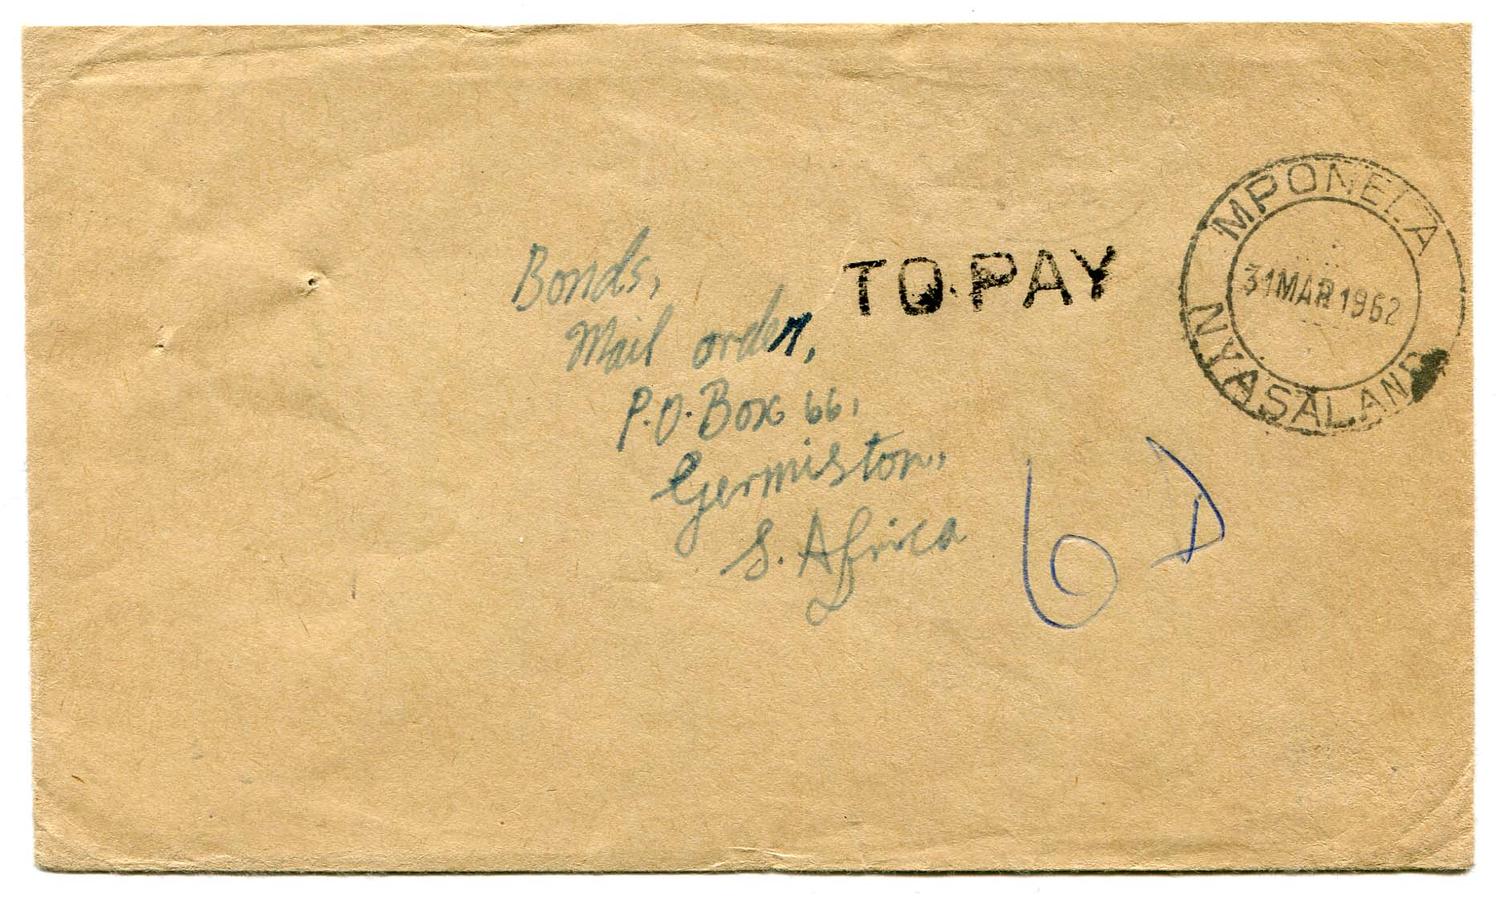 Bonds,
Mail order,
P.O. Box 66,
Germiston,
S. Africa
TO PAY
MPONELA
31 MAR 1962
NYASALAND
6D